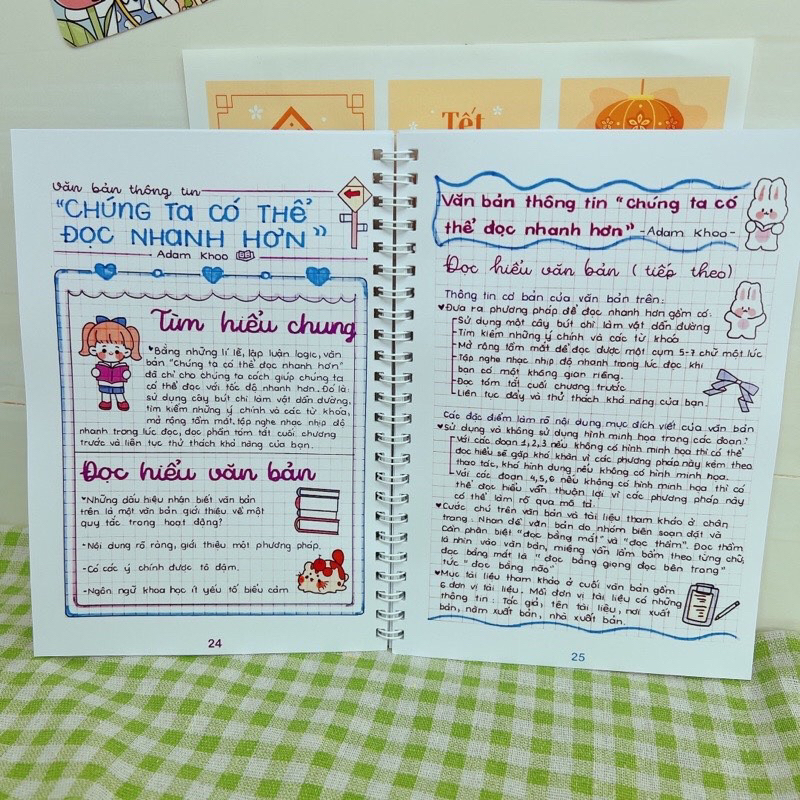 Tết
Văn bản thông tin
“CHÚNG TA CÓ THỂ
ĐỌC NHANH HƠN”
Adam Khoo
Tìm hiểu chung
Bằng những lí lẽ, lập luận logic, văn
bản “Chúng ta có thể đọc nhanh hơn”
đã chỉ cho chúng ta cách giúp chúng ta
có thể đọc với tốc độ nhanh hơn. Đó là:
sử dụng cây bút chì làm vật dẫn đường,
tìm kiếm những ý chính và các từ khóa,
mở rộng tầm mắt, tập nghe nhạc nhịp độ
nhanh trong lúc đọc, đọc phần tóm tắt cuối chương
trước và liên tục thử thách khả năng của bạn.
Đọc hiểu văn bản
Những dấu hiệu nhận biết văn bản
trên là một văn bản giới thiệu về một
quy tắc trong hoạt động?
-Nội dung rõ ràng, giới thiệu một phương pháp.
-Có các ý chính được tô đậm.
-Ngôn ngữ khoa học ít yếu tố biểu cảm
24
Văn bản thông tin “Chúng ta có
thể đọc nhanh hơn” -Adam Khoo-
Đọc hiểu văn bản (tiếp theo)
Thông tin cơ bản của văn bản trên:
Đưa ra phương pháp để đọc nhanh hơn gồm có:
Sử dụng một cây bút chì làm vật dẫn đường
Tìm kiếm những ý chính và các từ khóa
Mở rộng tầm mắt để đọc được một cụm 5-7 chữ một lúc
Tập nghe nhạc nhịp độ nhanh trong lúc đọc khi
bạn có một không gian riêng.
Đọc tóm tắt cuối chương trước
Liên tục đẩy và thử thách khả năng của bạn.
Các đặc điểm làm rõ nội dung mục đích viết của văn bản
Sử dụng và không sử dụng hình minh họa trong các đoạn?
Với các đoạn 1,2,3 nếu không có hình minh họa thì có thể
đọc hiểu sẽ gặp khó khăn vì các phương pháp này kèm theo
thao tác, khó hình dung nếu không có hình minh họa.
Với các đoạn 4,5,6 nếu không có hình minh họa thì có
thể đọc hiểu vẫn thuận lợi vì các phương pháp này
có thể làm rõ qua mô tả.
Cước chú trên văn bản và tài liệu tham khảo ở chân
trang: Nhan đề văn bản do nhóm biên soạn đặt và
Cần phân biệt “đọc bằng mắt” và “đọc thầm”. Đọc thầm
là nhìn vào văn bản, miệng vẫn lẩm bẩm theo từng chữ,
đọc bằng mắt là “đọc bằng giọng đọc bên trong”
tức “đọc bằng não”
Mục tài liệu tham khảo ở cuối văn bản gồm
6 đơn vị tài liệu. Mỗi đơn vị tài liệu có những
thông tin: Tác giả, tên tài liệu, nơi xuất
bản, năm xuất bản, nhà xuất bản.
25